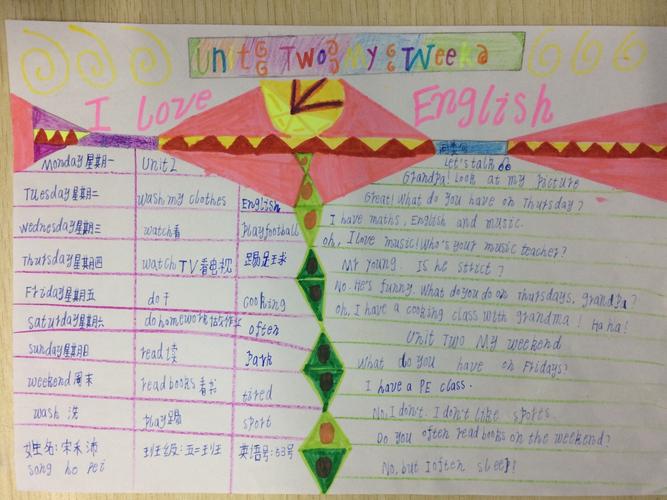 Unit Two My Week
I love English
Monday星期一 Unit2
Tuesday星期二 wash my clothes English
Wednesday星期三 watch看 Play football
Thursday星期四 watch TV看电视 踢足球
Friday星期五 do干 cooking
Saturday星期六 do homework做作业 often
Sunday星期日 read读 Park
weekend周末 read books看书 tired
wash 洗 Play踢 sport
姓名:宋禾沛 班级:五二班 英语号:53号
song he pei
Let's talk
Grandpa! Look at my picture
Great! What do you have on Thursday?
I have maths, English and music.
oh, I love music! Who's your music teacher?
Mr young. Is he strict?
No. He's funny. What do you do on Thursdays, grandpa?
oh, I have a cooking class with grandma! Ha ha!
Unit Two My weekend
What do you have on Fridays?
I have a PE class.
No, I don't. I don't like sports.
Do you often read books on the weekend?
No, but I often sleep!